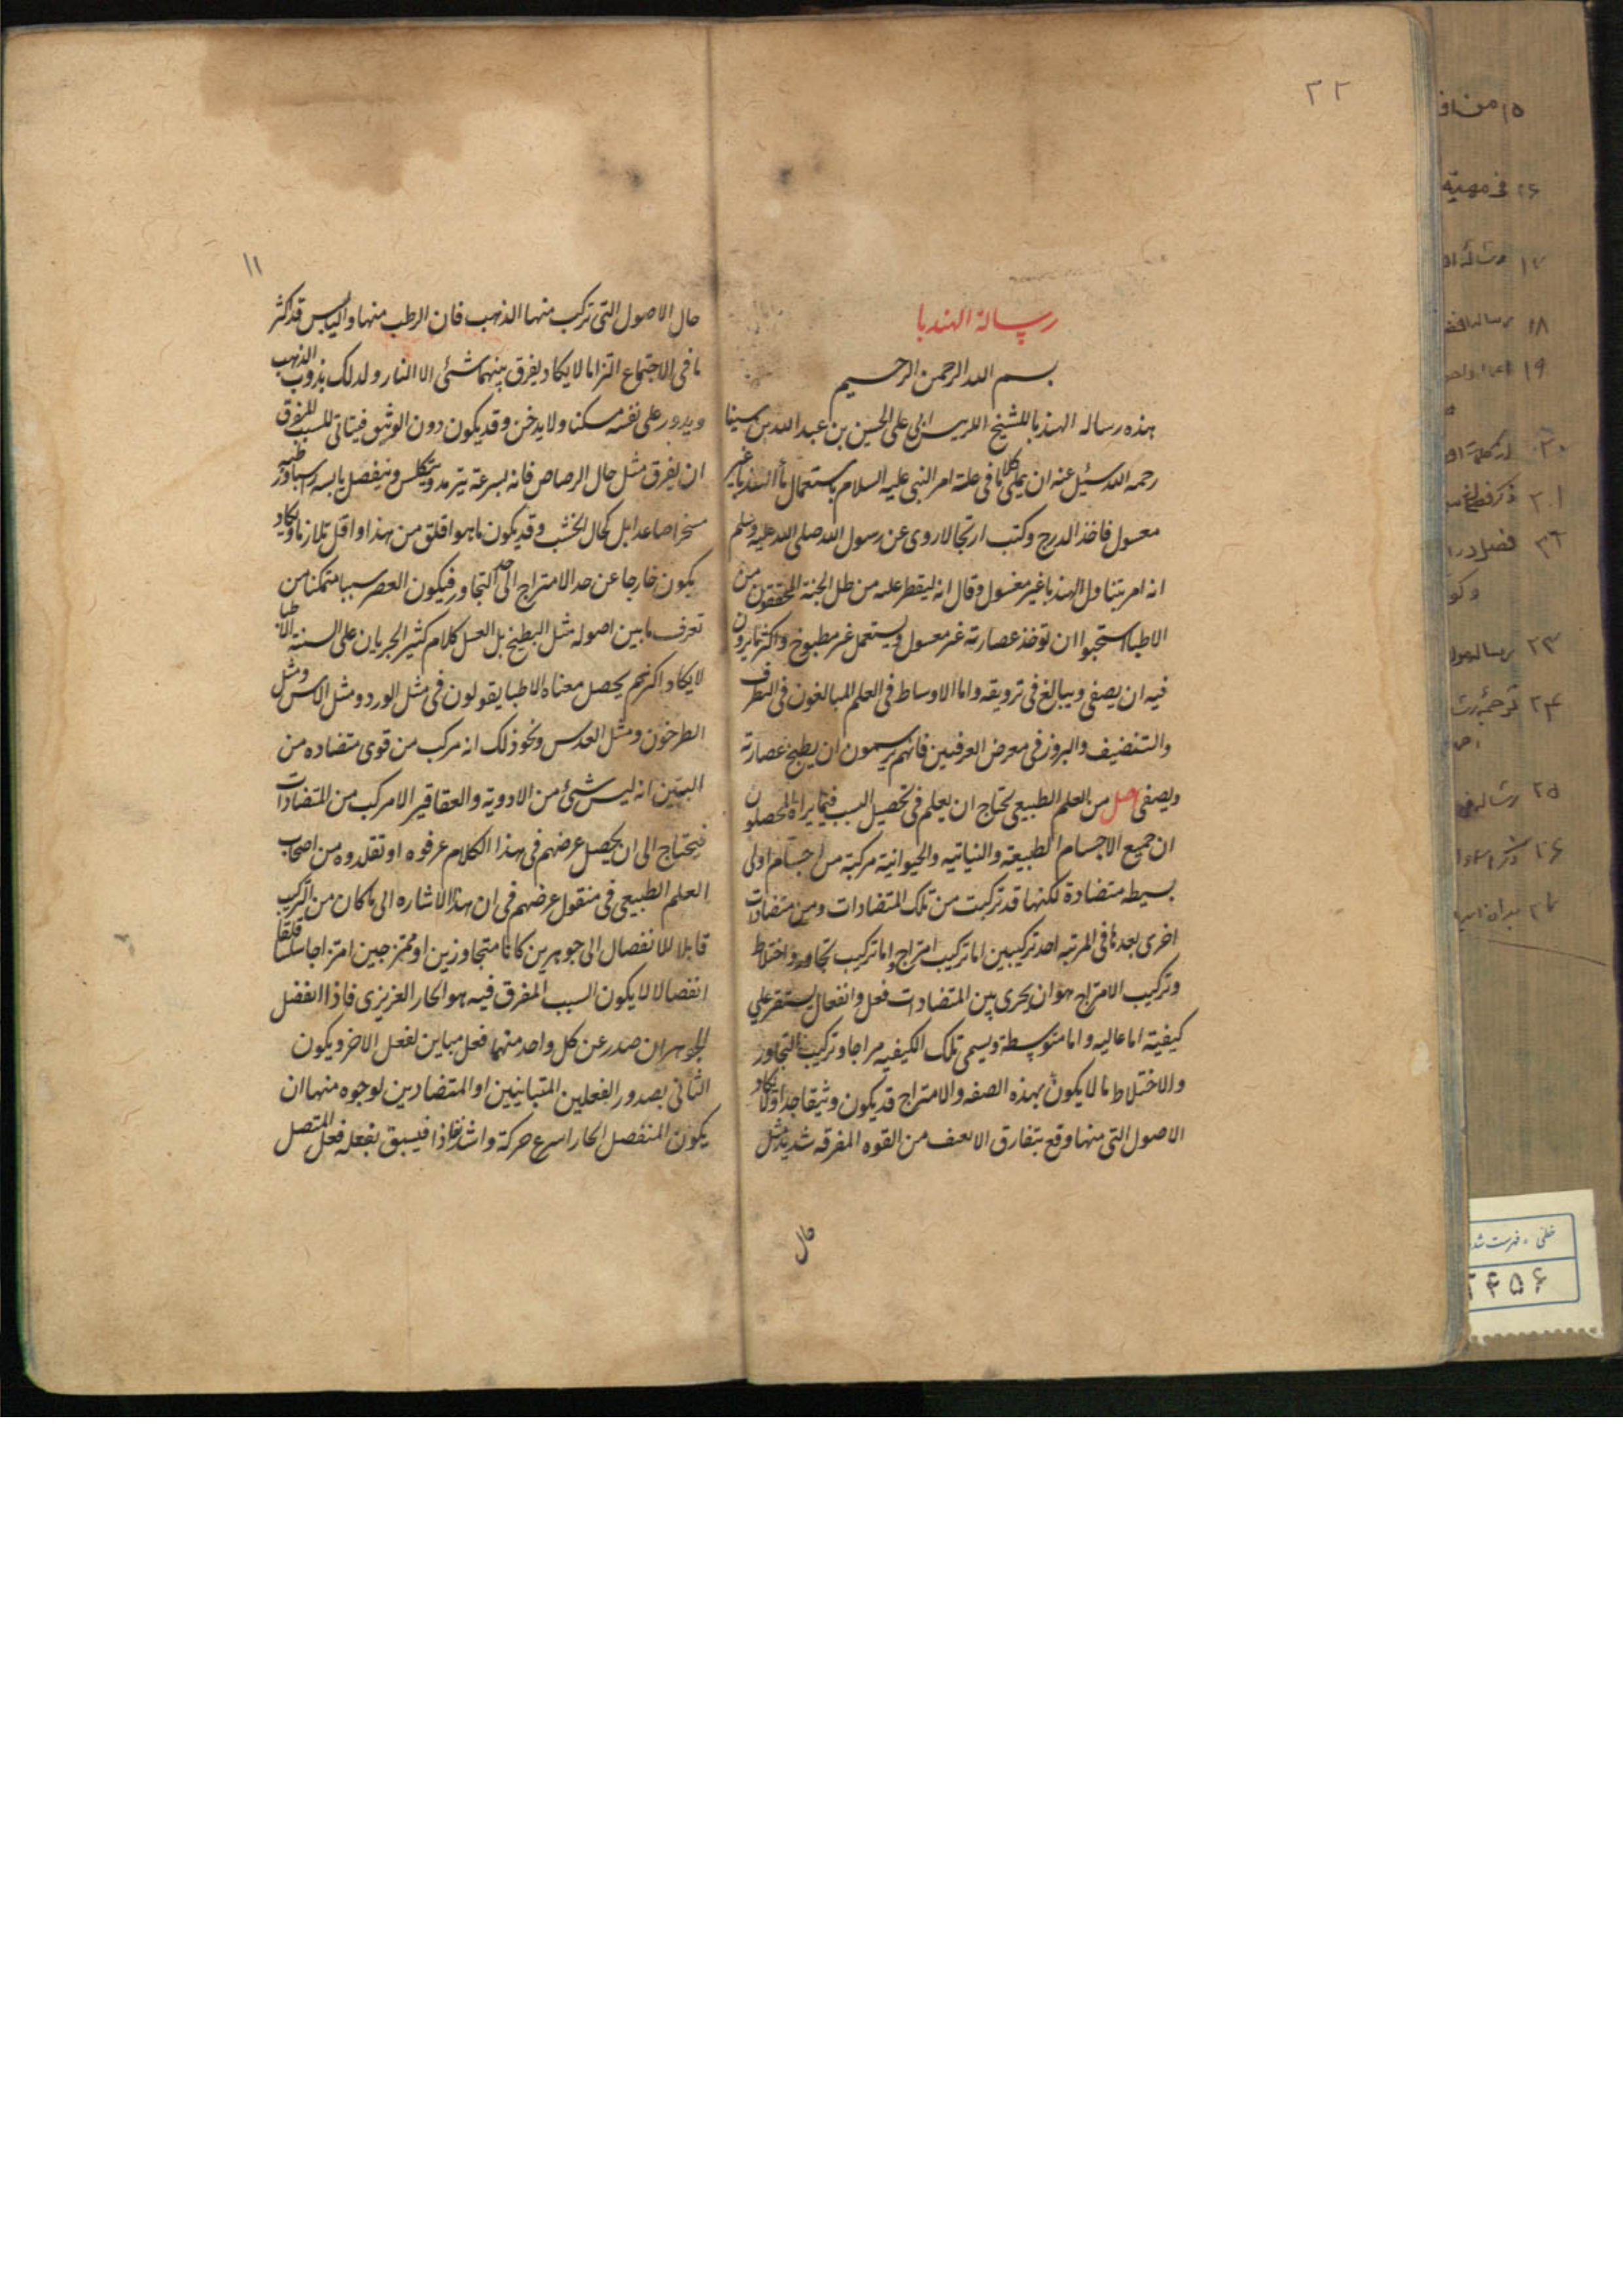 ٢٢
رسالة الهندبا
بسم الله الرحمن الرحيم
هذه رساله الهندبا للشيخ الرييس ابى على الحسين بن عبد الله بن سينا
رحمه الله سئيل عنه ان يملى كلاما فى علة امر النبى عليه السلام باستعمال ماء الهندبا غير
معسول فاخذ الدرج وكتب ارتجالا روى عن رسول الله صلى الله عليه وسلم
انه امر بتناول الهندبا غير مغسول وقال انه ليقطر عليه من طل الجنة المحققون من
الاطبا استحبوا ان توخذ عصارته غير معسول ويستعمل غير مطبوخ واكثر ما يرون
فيه ان يصفى ويبالغ فى ترويقه واما الاوساط فى العلم المبالغون فى التطرف
والتنضيف والبروز فى معرض العرفين فانهم يرسمون ان يطبخ عصارته
ويصفى اصل من العلم الطبيعى يحتاج ان يعلم فى تحصيل السبب فيما يراه المحصلون
ان جميع الاجسام الطبيعته والنباتيه والحيوانية مركبة من اجسام اولى
بسيطه متضادة لكنها قد تركبت من تلك المتضادات ومن متضادات
اخرى بعدها فى المرتبه احد تركيبين اما تركيب امتراج واما تركيب تجاور واختلاط
وتركيب الامتراج هو ان يجرى بين المتضادات فعل وانفعال يستقر على
كيفيته اما عاليه واما متوسطة ويسمى تلك الكيفيه مراجا وتركيب التجاور
والاختلاط ما لا يكون بهذه الصفه والامتراج قد يكون وثيقا جدا ولا تكاد
الاصول التى منها وقع يتفارق الا لعنف من القوه المفرقه شديد مثل
حال
١١
حال الاصول التى تركب منها الذهب فان الرطب منها واليابس قد اكثر
ما فى الاجتماع التزاما لا يكاد يفرق بينهما شئى الا النار ولدلك يذوب الذهب
ويدور على نفسه مسكنا ولا يدخن وقد يكون دون الوثيق فيتاتى للسبب المفرق
ان يفرق مثل حال الرصاص فانه بسرعة يترمد ويتكلس وينفصل يابسه راسبا ورطبه
متبخرا صاعدا بل كحال الخشب وقد يكون ما هو اقلق من هذا واقل تلازما ويكاد
يكون خارجا عن حد الامتراج الى حد التجاور فيكون العصر سببا متمكنا من
تعرف ما بين اصوله مثل البطيخ بل العسل كلام كثير الجريان على السنة الاطبا
لا يكاد اكثرهم يحصل معناه الاطبا يقولون فى مثل الورد ومثل الاس ومثل
الطرخون ومثل العدس ونحو ذلك انه مركب من قوى متضاده من
البين انه ليس شئى من الادويه والعقاقير الا مركب من المتضادات
فيحتاج الى ان يحصل عرضهم فى هذا الكلام عرفوه او تقلدوه من اصحاب
العلم الطبيعى فى منقول عرضهم فى ان هذا الاشاره الى ما كان من التركيب
قابلا للانفصال الى جوهرين كانا متجاوزين او ممتزجين امتزاجا سلسا قلقا
انفصالا لا يكون السبب المفرق فيه هو الحار العزيزى فاذا انفضل
الجوهران صدر عن كل واحد منهما فعل مباين لفعل الاخر ويكون
الثانى بصدور الفعلين المتباينين او المتضادين لوجوه منها ان
يكون المنفصل الحار اسرع حركة واشد نفاذا فيسبق بفعله فعل المتصل
١٨
١٩
٢٤
٢٥
خطى ، فهرست شده